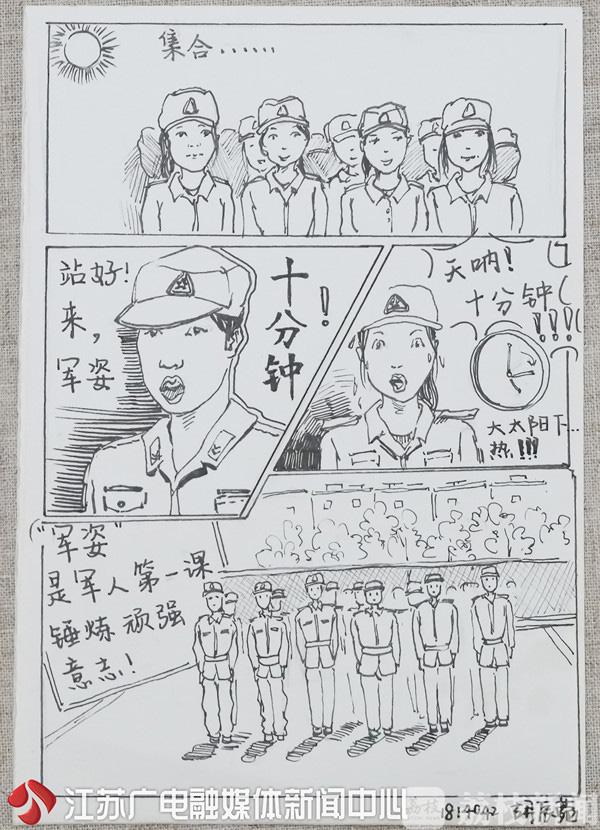 集合......
站好!
来,
军姿
十分钟!
天呐!
十分钟
!!!
大太阳下...
热!!!
"军姿"
是军人第一课
锤炼顽强
意志!
江苏广电融媒体新闻中心
荔枝新闻